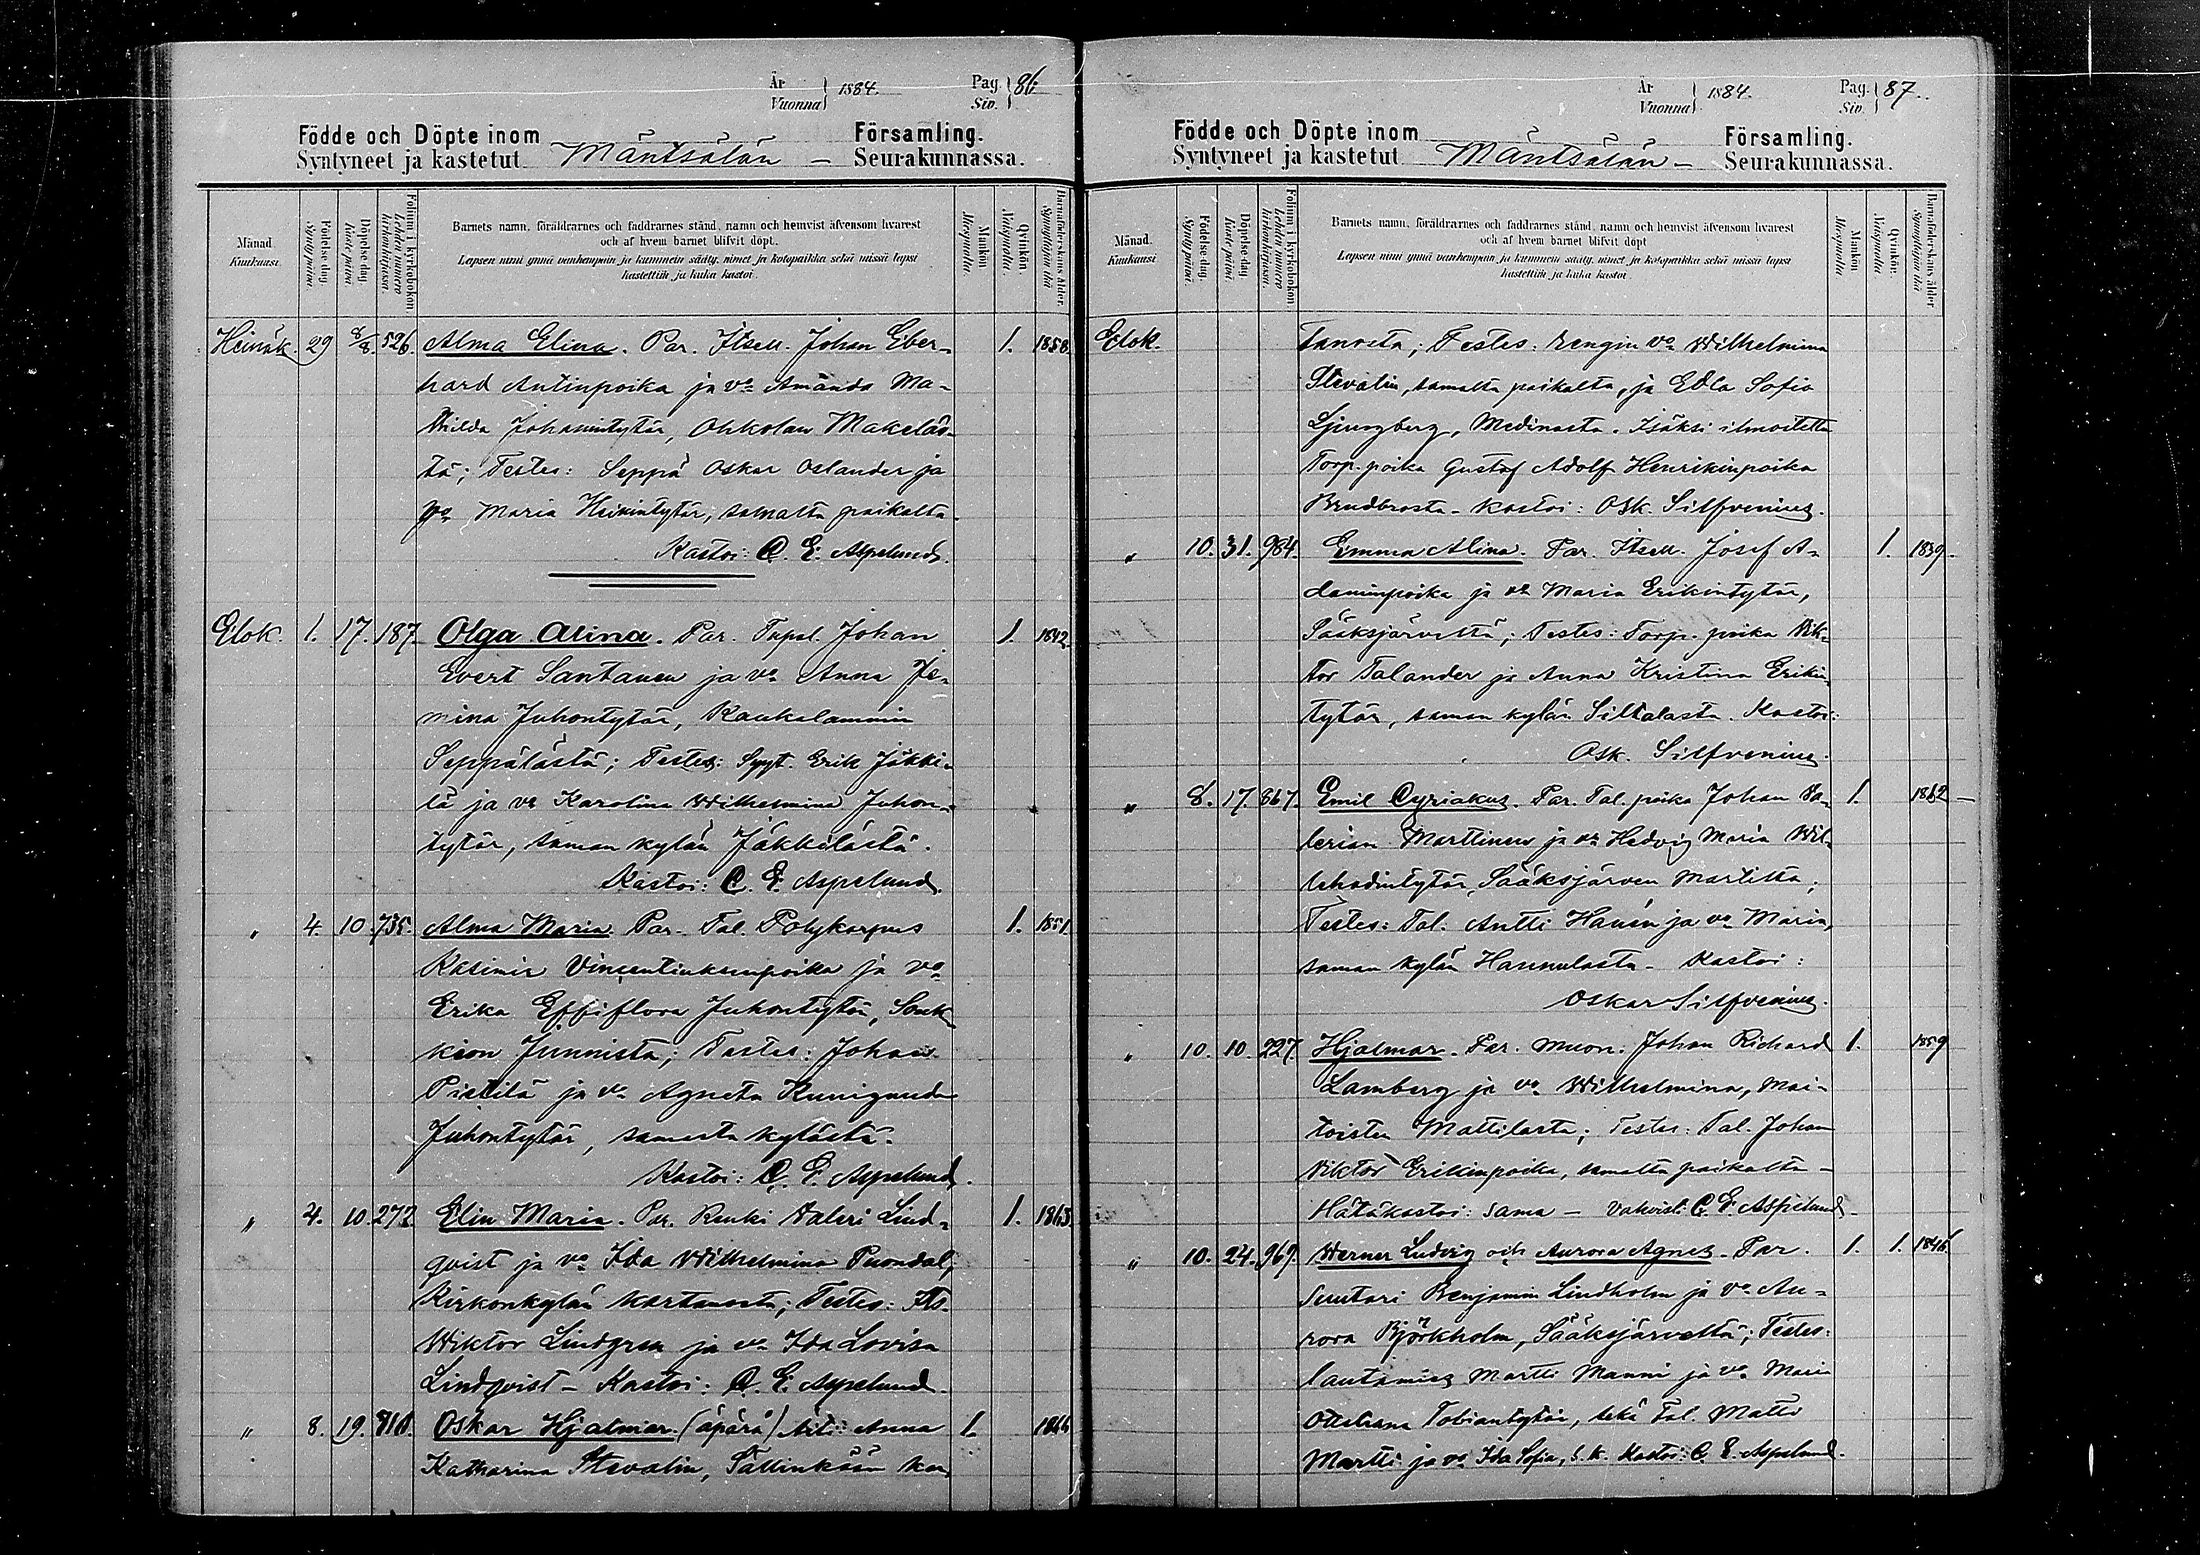 År
Vuonna } 1884.
Pag.
Siv. } 86.
Födde och Döpte inom Församling.
Syntyneet ja kastetut Mäntsälän – Seurakunnassa.
Månad. Kuukausi.
Födelse-dag. Syntymäpäivä.
Döpelse-dag. Kaste-päivä.
Folium i kyrkobokon. Lehden numero kirkonkirjassa.
Barnets namn, föräldrarnes och faddrarnes stånd, namn och hemvist äfvensom hvarest
och af hvem barnet blifvit döpt.
Lapsen nimi ynnä vanhempain ja kummein sääty, nimet ja kotopaikka sekä missä lapsi
kastettiin ja kuka kastoi.
Mankön Miespuolia
Qvinkön Naispuolia
Barnaföderskans ålder. Synnyttäjän ikä
Heinäk. 29 8/8 526. Alma Elina. Par. Itsell. Johan Eber- 1. 1858.
hard Antinpoika ja vo Amanda Ma-
thilda Johanintytär, Ohkolan Makeläs-
tä; Testes: Seppä Oskar Oslander ja
vo Maria Heikintytär, samalta paikalta.
Kastoi: C. E. Aspelund.
Elok. 1. 17. 187. Olga Alina. Par. Tupal. Johan 1. 1842
Evert Santanen ja vo Anna Je-
mina Juhontytär, Kaukalammin
Seppälästä; Testes: Erik Jäkki-
lä ja vo Karolina Wilhelmina Juhon-
tytär, saman kylän Jäkkilästä.
Kastoi: C. E. Aspelund.
" 4. 10. 735. Alma Maria. Par. Tal. Polykarpus 1. 1851.
Kasimir Vincentiuksenpoika ja vo
Erika Effiflora Juhontytär, Souk-
kion Junnista; Testes: Johan
Pietilä ja vo Agneta Kunigunda
Juhontytär, samasta kylästä.
Kastoi: C. E. Aspelund.
" 4. 10. 272 Elin Maria. Par. Renki Valeri Lind- 1. 1863.
qvist ja vo Ida Wilhelmina Puondal,
Kirkonkylän kartanosta; Testes: Its.
Wiktor Lindgren ja vo Ida Lovisa
Lindqvist – Kastoi: C. E. Aspelund.
" 8. 19. 818. Oskar Hjalmar. (äpärä) Äiti: Anna 1. 1866
Katharina Stevalin, Sälinkään kar
År
Vuonna } 1884.
Pag.
Siv. } 87.
Födde och Döpte inom Församling.
Syntyneet ja kastetut Mäntsälän – Seurakunnassa.
Månad. Kuukausi
Födelse-dag. Syntymäpäivä.
Döpelse-dag. Kaste-päivä.
Folium i kyrkobokon. Lehden numero kirkonkirjassa.
Barnets namn, föräldrarnes och faddrarnes stånd, namn och hemvist äfvensom hvarest
och af hvem barnet blifvit döpt
Lapsen nimi ynnä vanhempain ja kummein sääty, nimet ja kotopaikka sekä missä lapsi
kastettiin ja kuka kastoi.
Mankön Miespuolia
Qvinkön. Naispuolia
Barnaföderskans ålder Synnyttäjän ikä
Elok. tanosta; Testes: Rengin vo Wilhelmina
Stevalin, samalta paikalta, ja Edla Sofia
Ljungberg, Medinasta. Isäksi ilmoitettu
Torp. poika Gustaf Adolf Henrikinpoika
Brudbrosta – Kastoi: Osk. Silfvenius.
" 10. 31. 984. Emma Alina. Par. Itsell. Josef A- 1. 1839.
daminpoika ja vo Maria Erikintytär,
Sääksjärveltä; Testes: Torp. poika Vik-
tor Talander ja Anna Kristina Erikin-
tytär, saman kylän Siltalasta. Kastoi:
Osk. Silfvenius.
" 8. 17. 867. Emil Cyriakus. Par. Tal. poika Johan Va- 1. 1862 –
lerian Marttinen ja vo Hedvig Maria Wil-
lehadintytär, Sääksjärven Martilta;
Testes: Tal. Antti Hanén ja vo Maria,
saman kylän Hannulasta – Kastoi:
Oskar Silfvenius.
" 10. 10. 227. Hjalmar. Par. Muon. Johan Richard 1. 1859
Lamberg ja vo Wilhelmina, Mai-
toisten Mattilasta; Testes: Tal. Johan
Viktor Erikinpoika, samalta paikalta –
Hätäkastoi: sama – Vahvisti: C. E. Aspelund.
" 10. 24. 969. Werner Ludvig och Aurora Agnes. Par. 1. 1. 1846
Suutari Benjamin Lindholm ja vo Au-
rora Björkholm, Sääksjärveltä; Testes:
lautamies Martti Manni ja vo Maria
Ottiliana Tobiantytär, sekä Tal. Matts
Martti ja vo Ida Sofia, S. K. Kastoi: C. E. Aspelund.